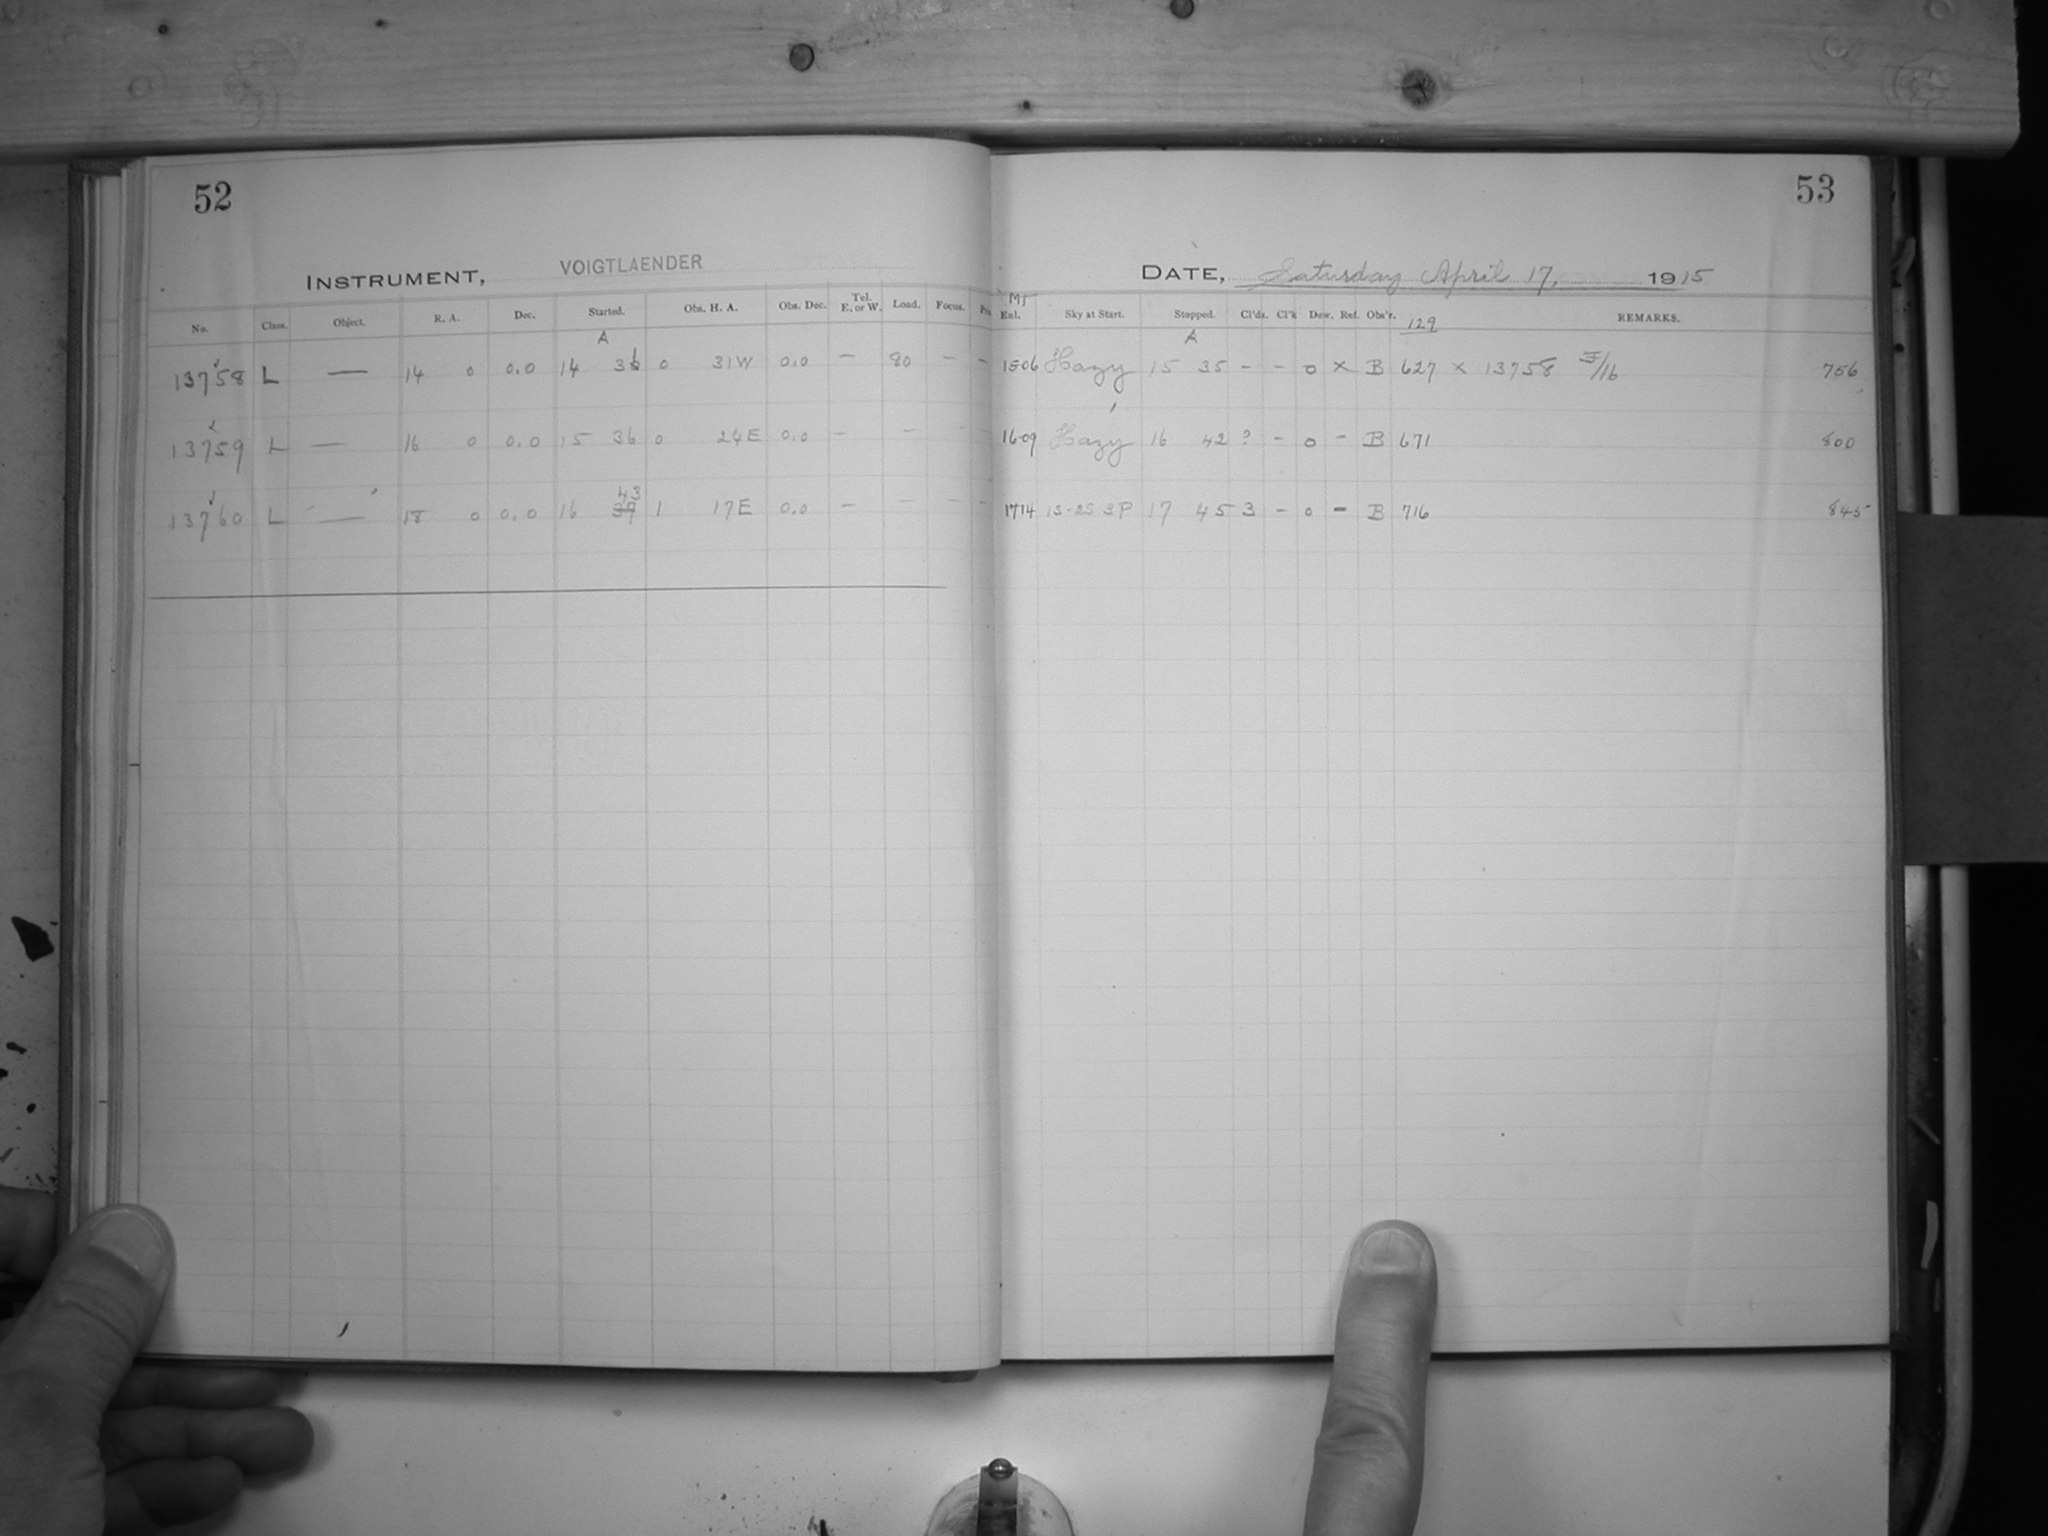 52
INSTRUMENT, VOIGTLAENDER
No. Class. Object. R. A. Dec. Started. Obs. H. A. Obs. Dec. Tel. E. or W. Load. Focus.
A
13758 L — 14 0 0.0 14 36 0 31W 0.0 — 80 — —
13759 L — 16 0 0.0 15 36 0 24E 0.0 — —
43
13760 L — 18 0 0.0 16 39 1 17E 0.0 — — — —
53
DATE, Saturday April 17, 1915
Enl. Sky at Start. Stopped. Cl'ds. Cl'k Dew. Ref. Obs'r. 129 REMARKS.
A
1506 Hazy 15 35 - - 0 × B 627 × 13758 /16 756
1609 Hazy 16 42 ? - 0 - B 671 800
1714 1S-2S 3P 17 45 3 - 0 - B 716 845